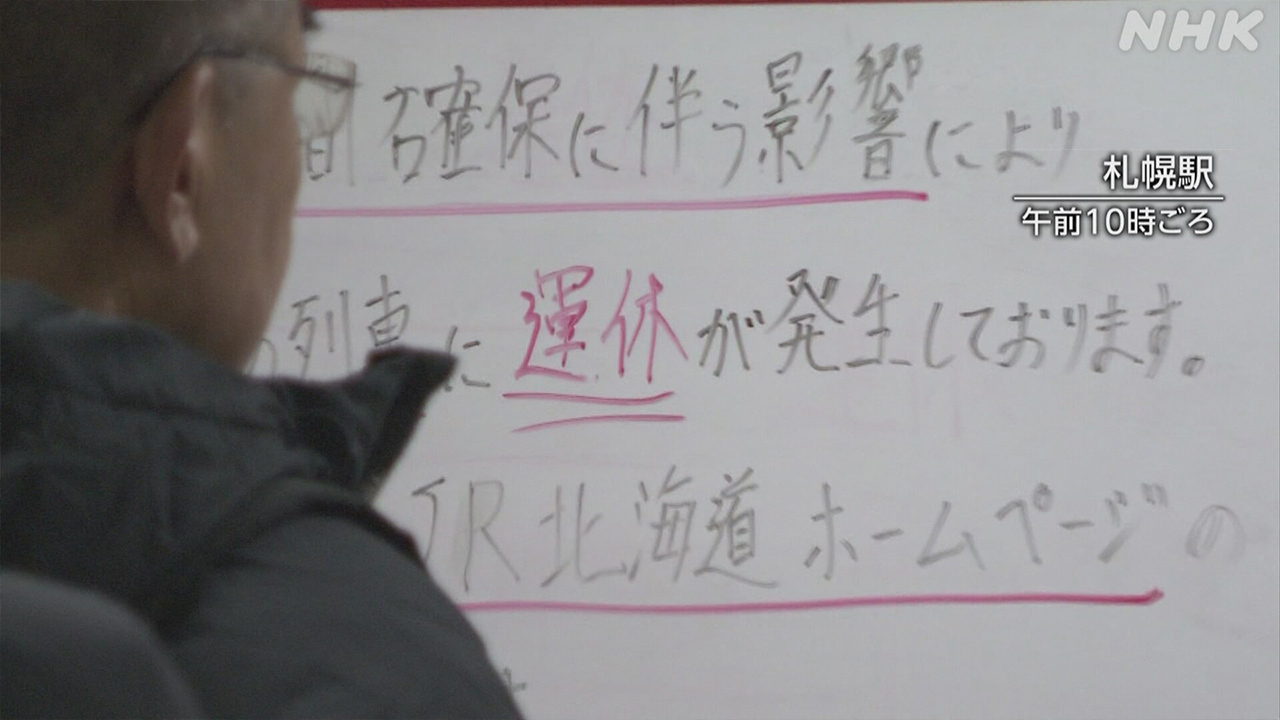 NHK
札幌駅
午前10時ごろ
間確保に伴う影響により
の列車に運休が発生しております。
JR北海道 ホームページの